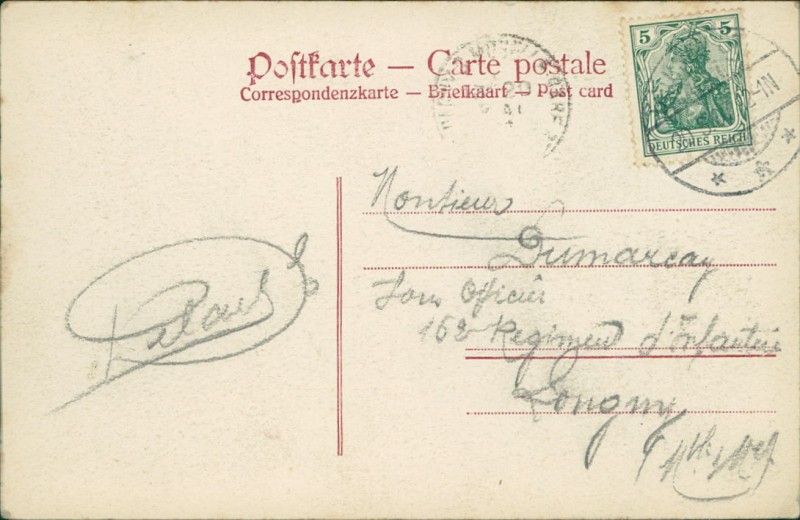 Postkarte — Carte postale
Correspondenzkarte — Briefkaart — Post card
5 5
DEUTSCHES REICH
Monsieur
Dumarcay
Sous Officier
162 Regiment d'Infanterie
Longwy
Mthe Mlle